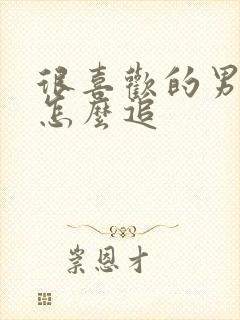 很喜歡的男
怎麼追
崇恩才